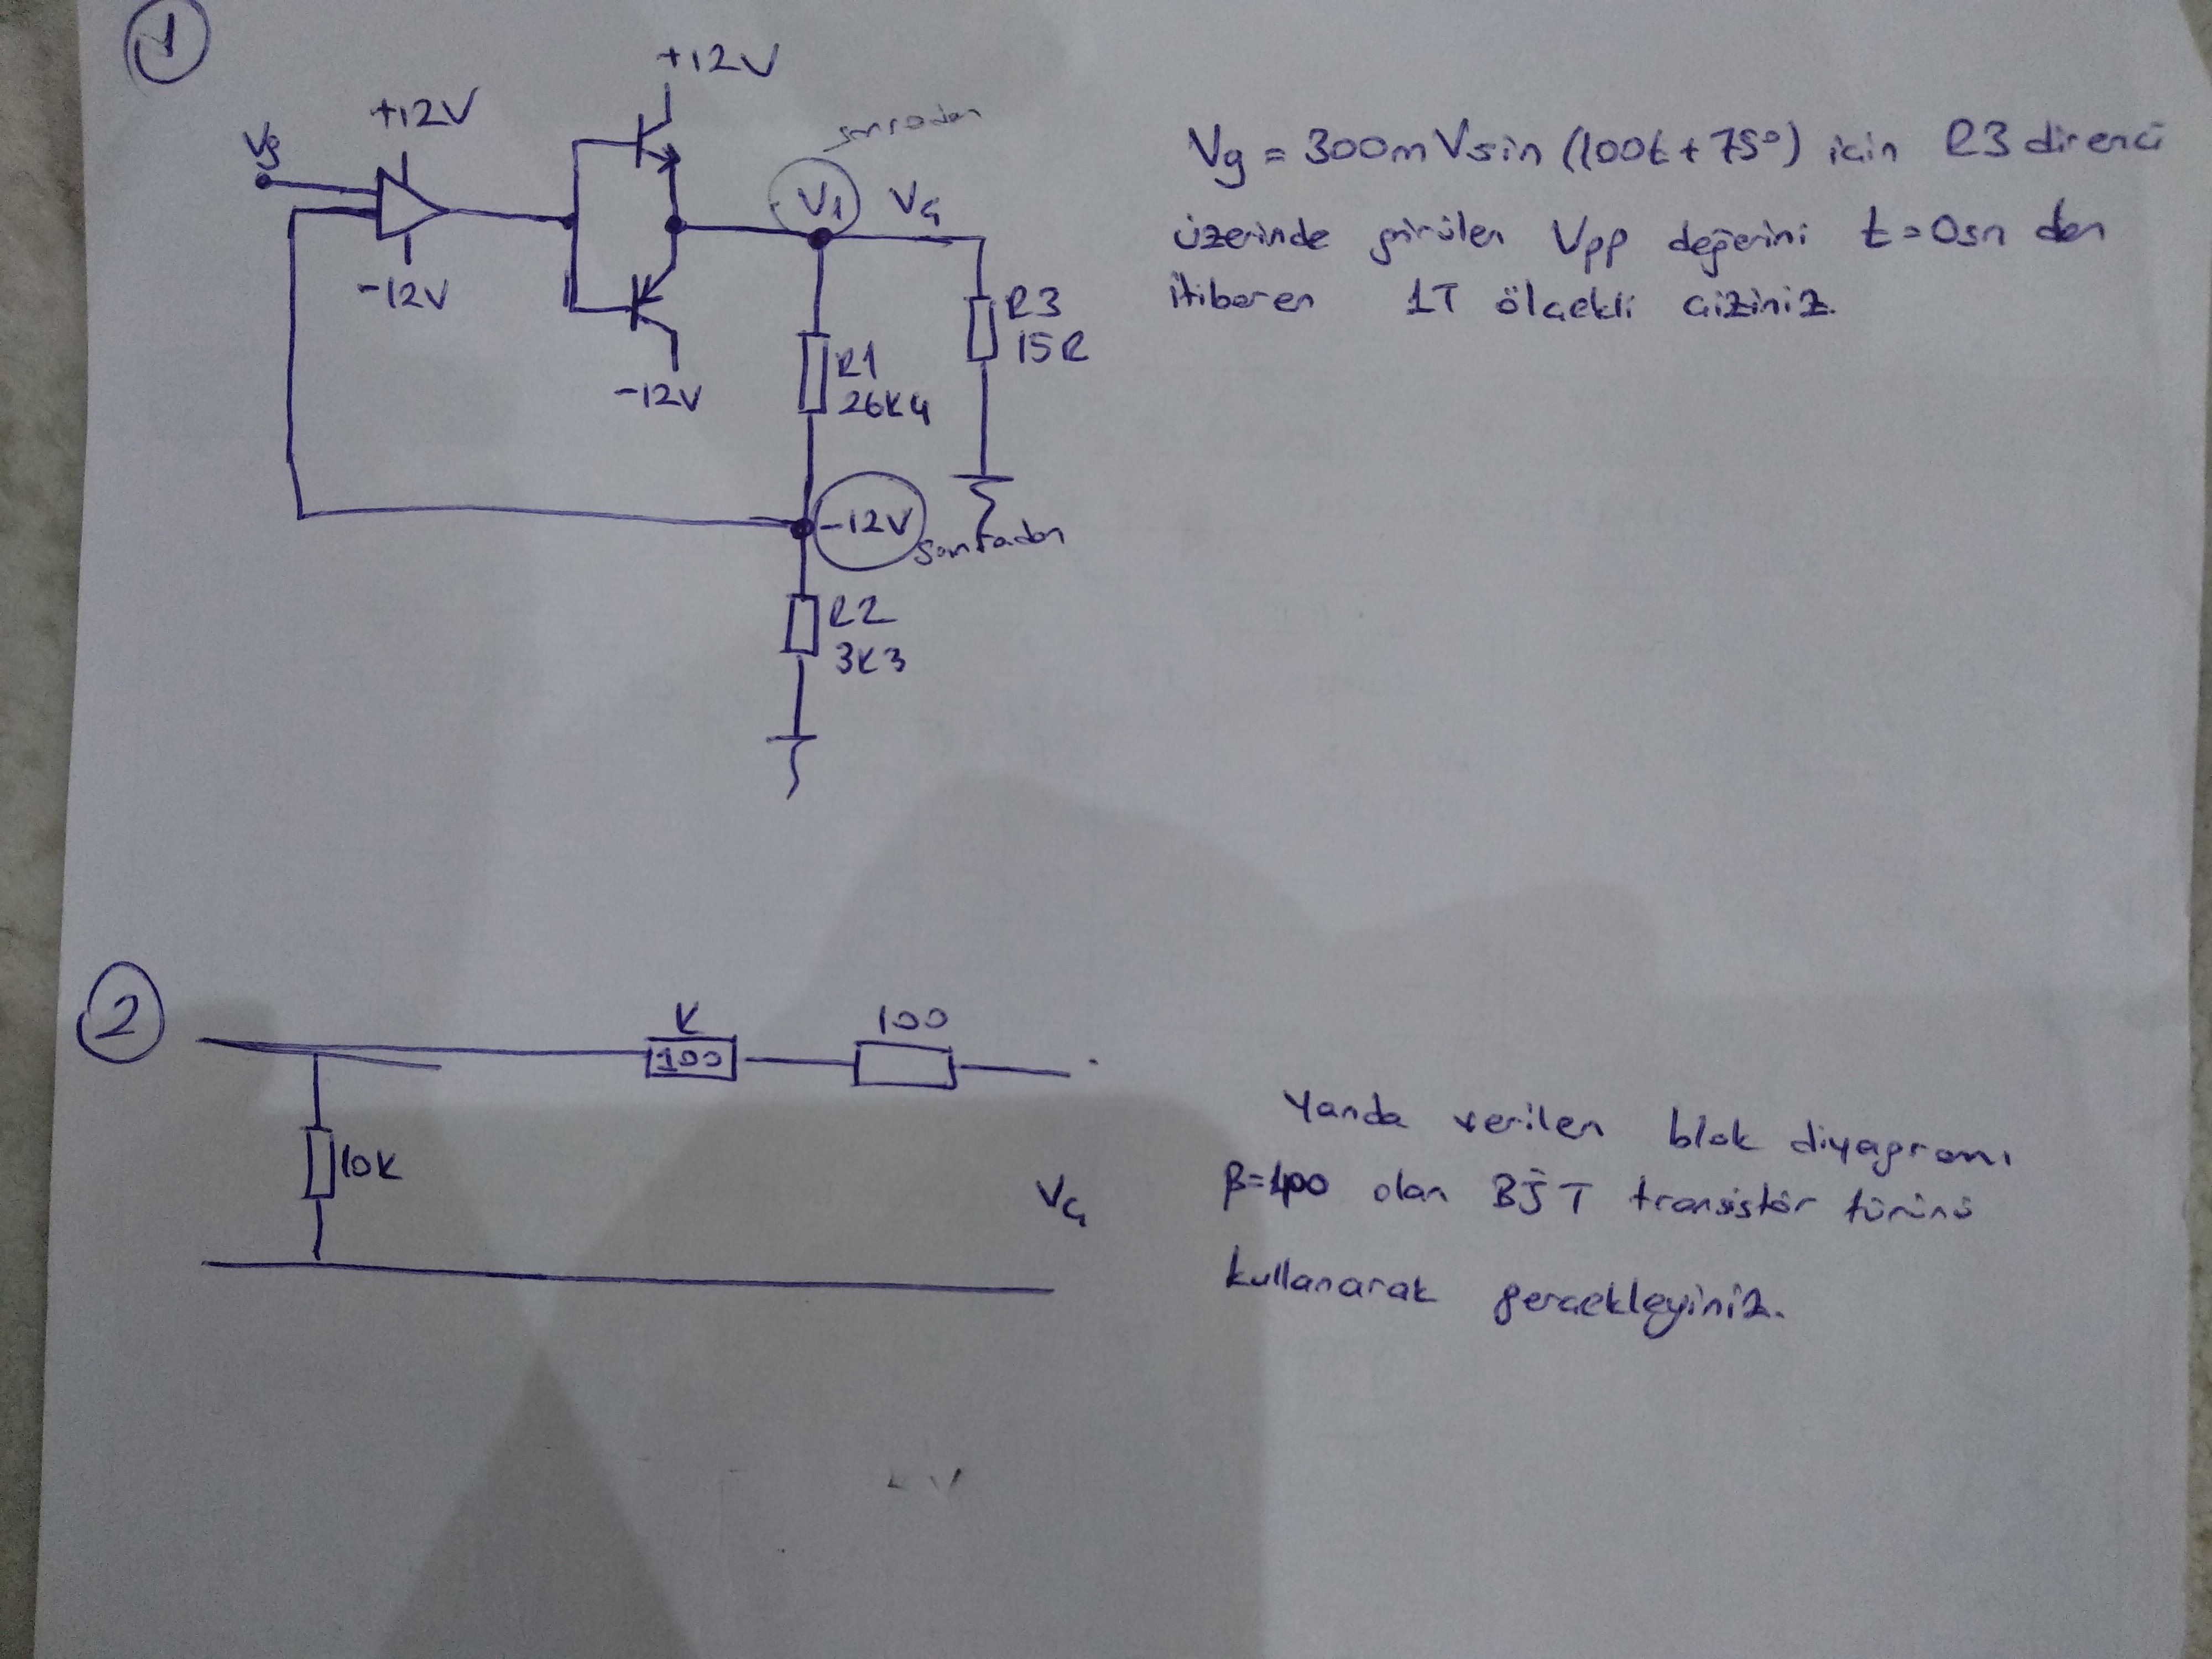 1
+12V
+12V
Vg
-12V
-12V
sonradan
V1
Vç
R1
26K4
R3
15R
-12V
sonradan
R2
3K3
Vg = 300mVsin (100t + 75°) için R3 direnci
üzerinde görülen Vpp değerini t=0sn den
itibaren 1T ölçekli çiziniz.
2
K
100
100
10K
Vç
Yanda verilen blok diyagramı
β=400 olan BJT transistör türünü
kullanarak gerçekleyiniz.